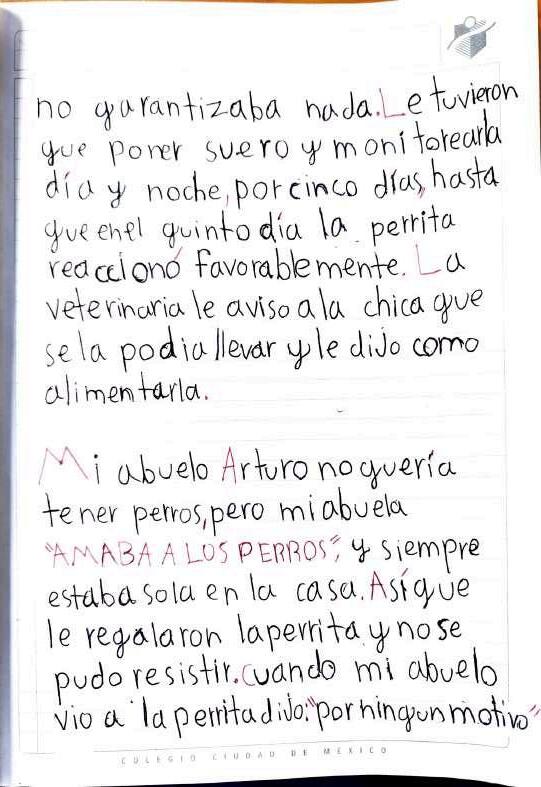 no garantizaba nada. Le tuvieron
que poner suero y monitorearla
día y noche, por cinco días, hasta
que en el quinto día la perrita
reaccionó favorablemente. La
veterinaria le aviso a la chica que
se la podia llevar y le dijo como
alimentarla.
Mi abuelo Arturo no quería
tener perros, pero mi abuela
"AMABA A LOS PERROS", y siempre
estaba sola en la casa. Así que
le regalaron la perrita y no se
pudo resistir. Cuando mi abuelo
vio a la perrita dijo: "por ningun motivo"
COLEGIO CIUDAD DE MEXICO